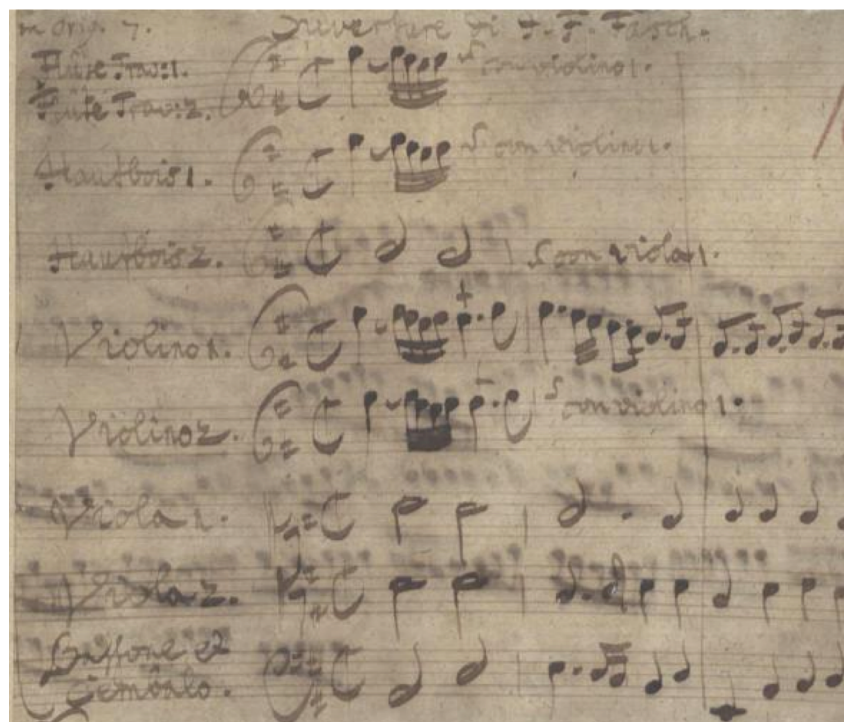 in orig. 7. Ouverture di J. F. Fasch.
Flûte Trav: 1. con violino 1.
Flûte Trav: 2.
Hautbois 1. con violino 1.
Hautbois 2. con viola 1.
Violino 1.
Violino 2. con violino 1.
Viola 1.
Viola 2.
Bassone et
Cembalo.